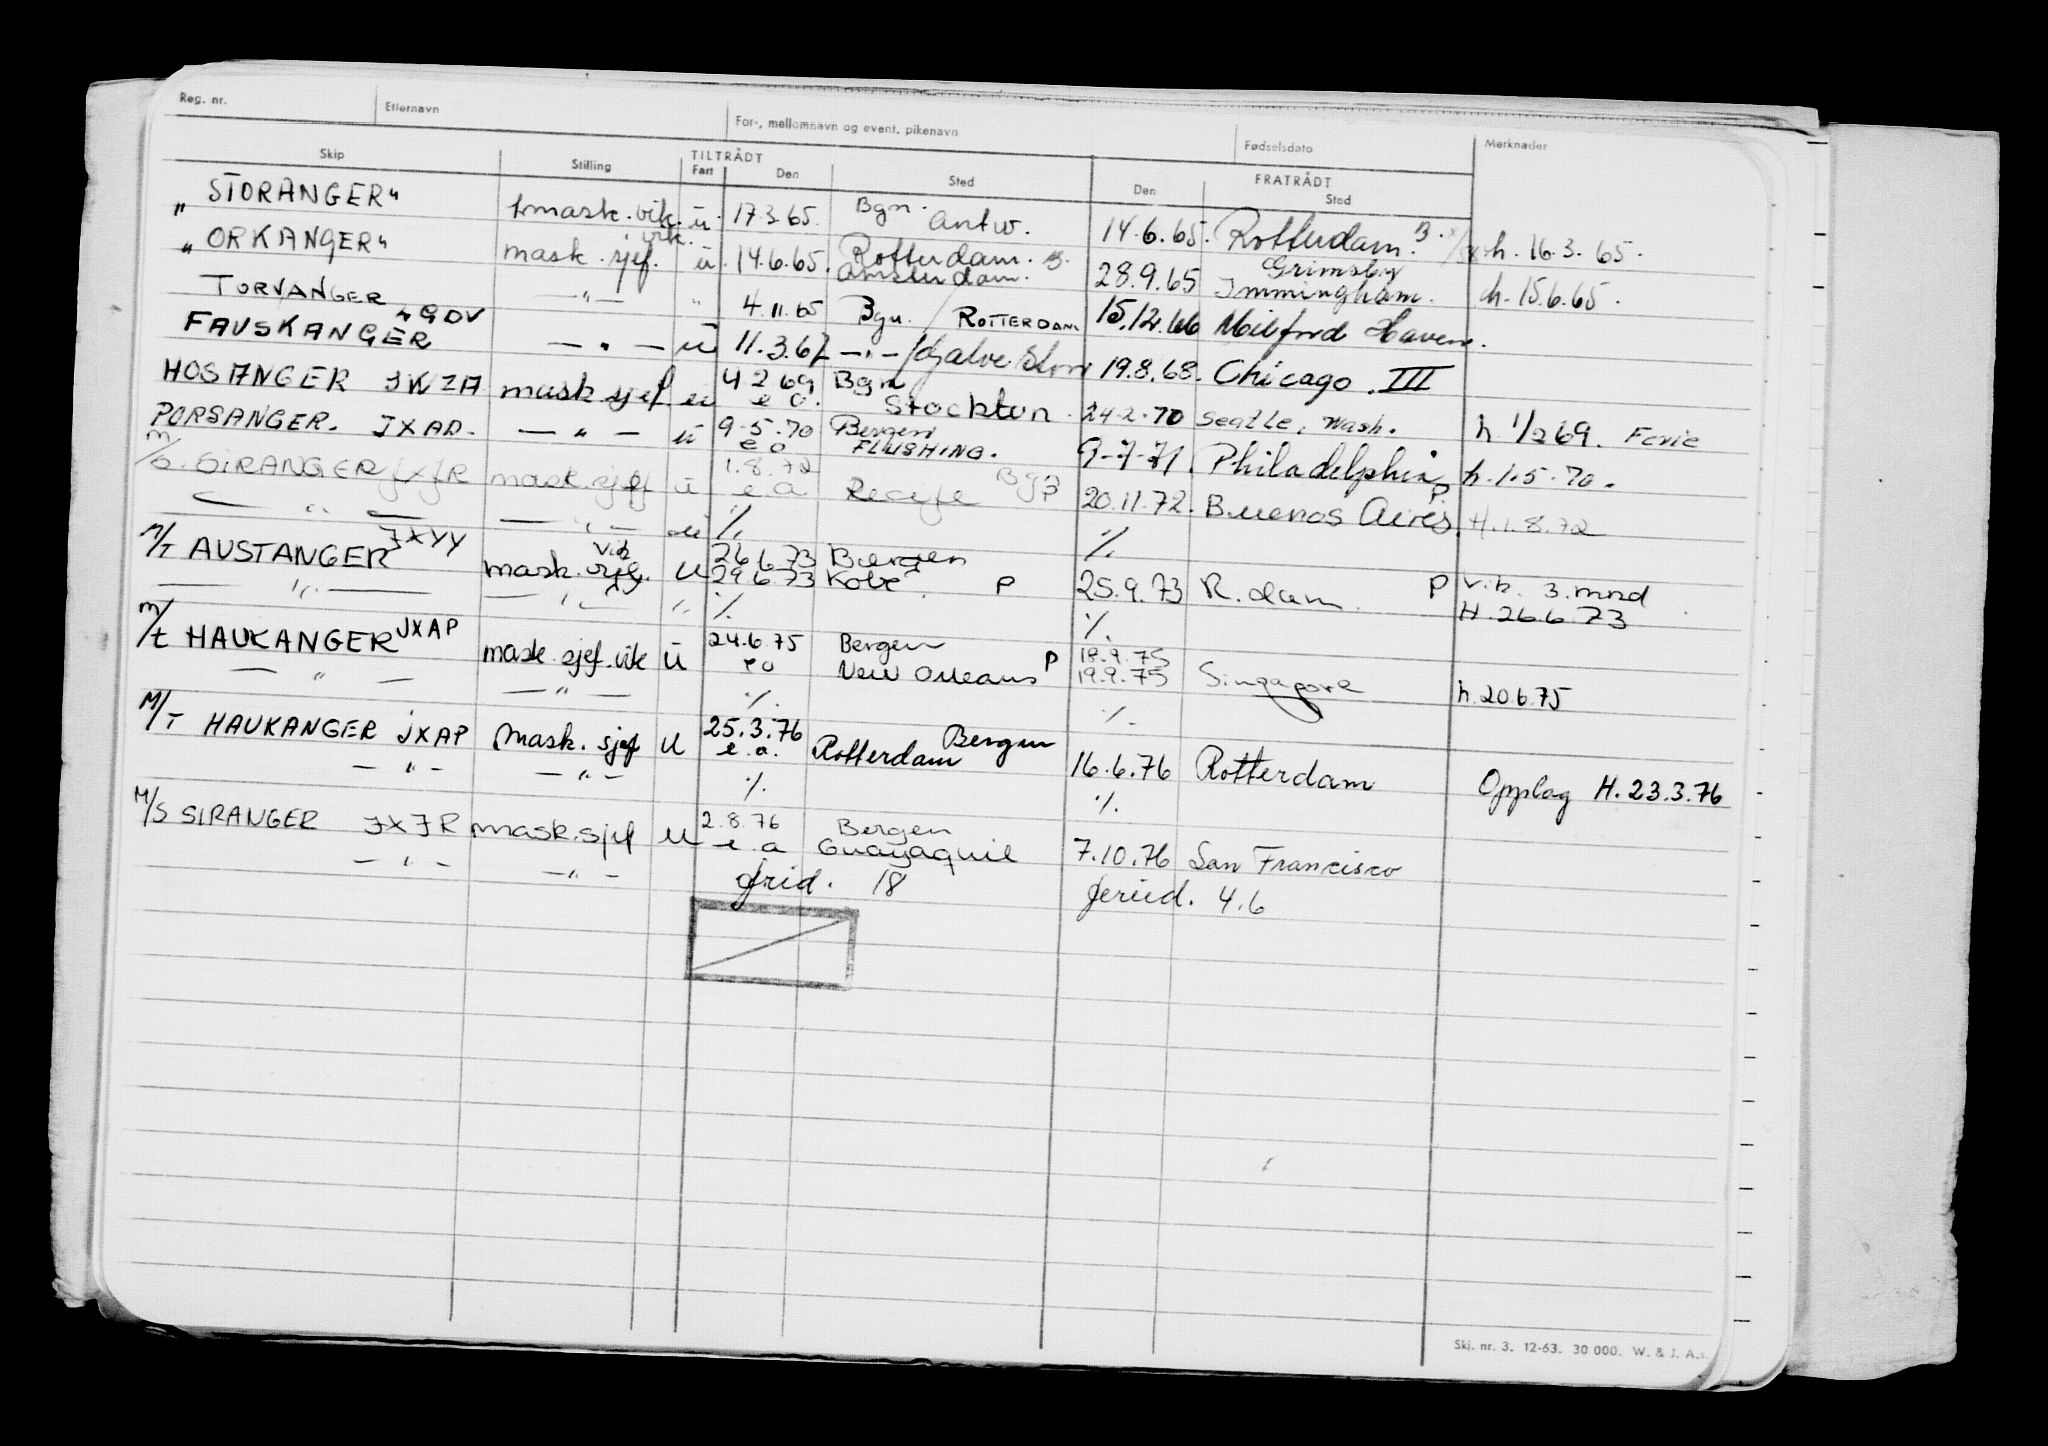 Reg. nr. Etternavn For-, mellomnavn og event. pikenavn Fødselsdato Merknader
Skip Stilling TILTRÅDT Fart Den Sted FRATRÅDT Den Sted
"STORANGER" 1mask. vik. ü 17.3.65. Bgn. Antw. 14.6.65. Rotterdam. B. h. 16.3.65.
"ORKANGER" mask. sjef. vik. ü 14.6.65. Rotterdam. B. Amsterdam. 28.9.65 Grimsby Immingham. h. 15.6.65.
TORVANGER —"— " 4.11.65 Bgn. / ROTTERDAM 15.12.66 Milford Haven.
FAUSKANGER LGDV —"— ü 11.3.67 —"— / Galveston 19.8.68. Chicago. III
HOSANGER mask sjef ü 4 2 69 e o. Bgn Stockton. 24-2-70 Seatle, Wash. h. 1/2 69. Ferie
PORSANGER. JXAD. —"— ü 9-5.70 e o Bergen FLUSHING. 9-7-71. Philadelphia h. 1.5.70.
M/S. SIRANGER JXJR mask. sjef ü 1.8.72 e a Recife Bg P 20.11.72. Buenos Aires. P H. 1.8.72
—"— —"— ü %. %.
M/T AUSTANGER JXYY mask. sjef. vik U 26 6 73 Bergen 29 6 73 Kobe. P 25.9.73 R.dam. P Vik. 3. mnd H. 26.6.73
—"— —"— " %. %.
M/t HAUKANGER JXAP mask. sjef. vik ü 24.6.75 e o Bergen New Orleans P 18.9.75 19.9.75 Singapore h. 20.6.75
—"— —"— %. %.
M/T HAUKANGER JXAP Mask. sjef U 25.3.76 e.a. Bergen Rotterdam 16.6.76 Rotterdam Opplag H. 23.3.76
—"— —"— %. %.
M/S SIRANGER JXJR mask. sjef U 2.8.76 e.a Bergen Guayaquil 7.10.76 San Francisco
—"— —"— frid. 18 feried. 4.6
Skj. nr. 3. 12-63. 30 000. W. & J. A.s.